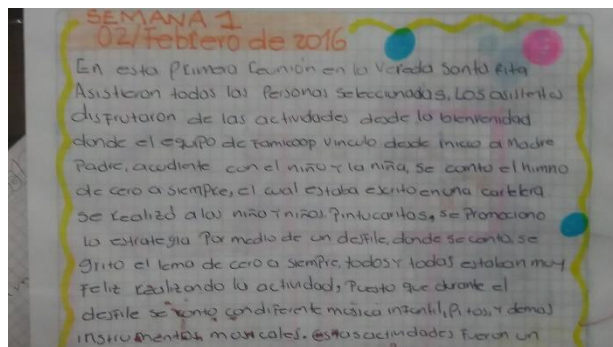 SEMANA 1
02/Febrero de 2016
En esta Primera Reunión en la Vereda Santa Rita
Asistieron todas las Personas seleccionadas, Los asistentes
disfrutaron de las actividades desde la bienvenidad
donde el equipo de Famicoop vinculo desde inicio a Madre
Padre, acudiente con el niño y la niña, se canto el himno
de cero a siempre, el cual estaba escrito en una cartelera
se realizó a los niño y niños Pintucaritas, se Promociono
la estrategia Por medio de un desfile, donde se canto, se
grito el lema de cero a siempre, todos y todas estaban muy
Feliz realizando la actividad, Puesto que durante el
desfile se conto con diferente musica infantil, Pitos, y demas
instrumentos musicales. estas actividades fueron un